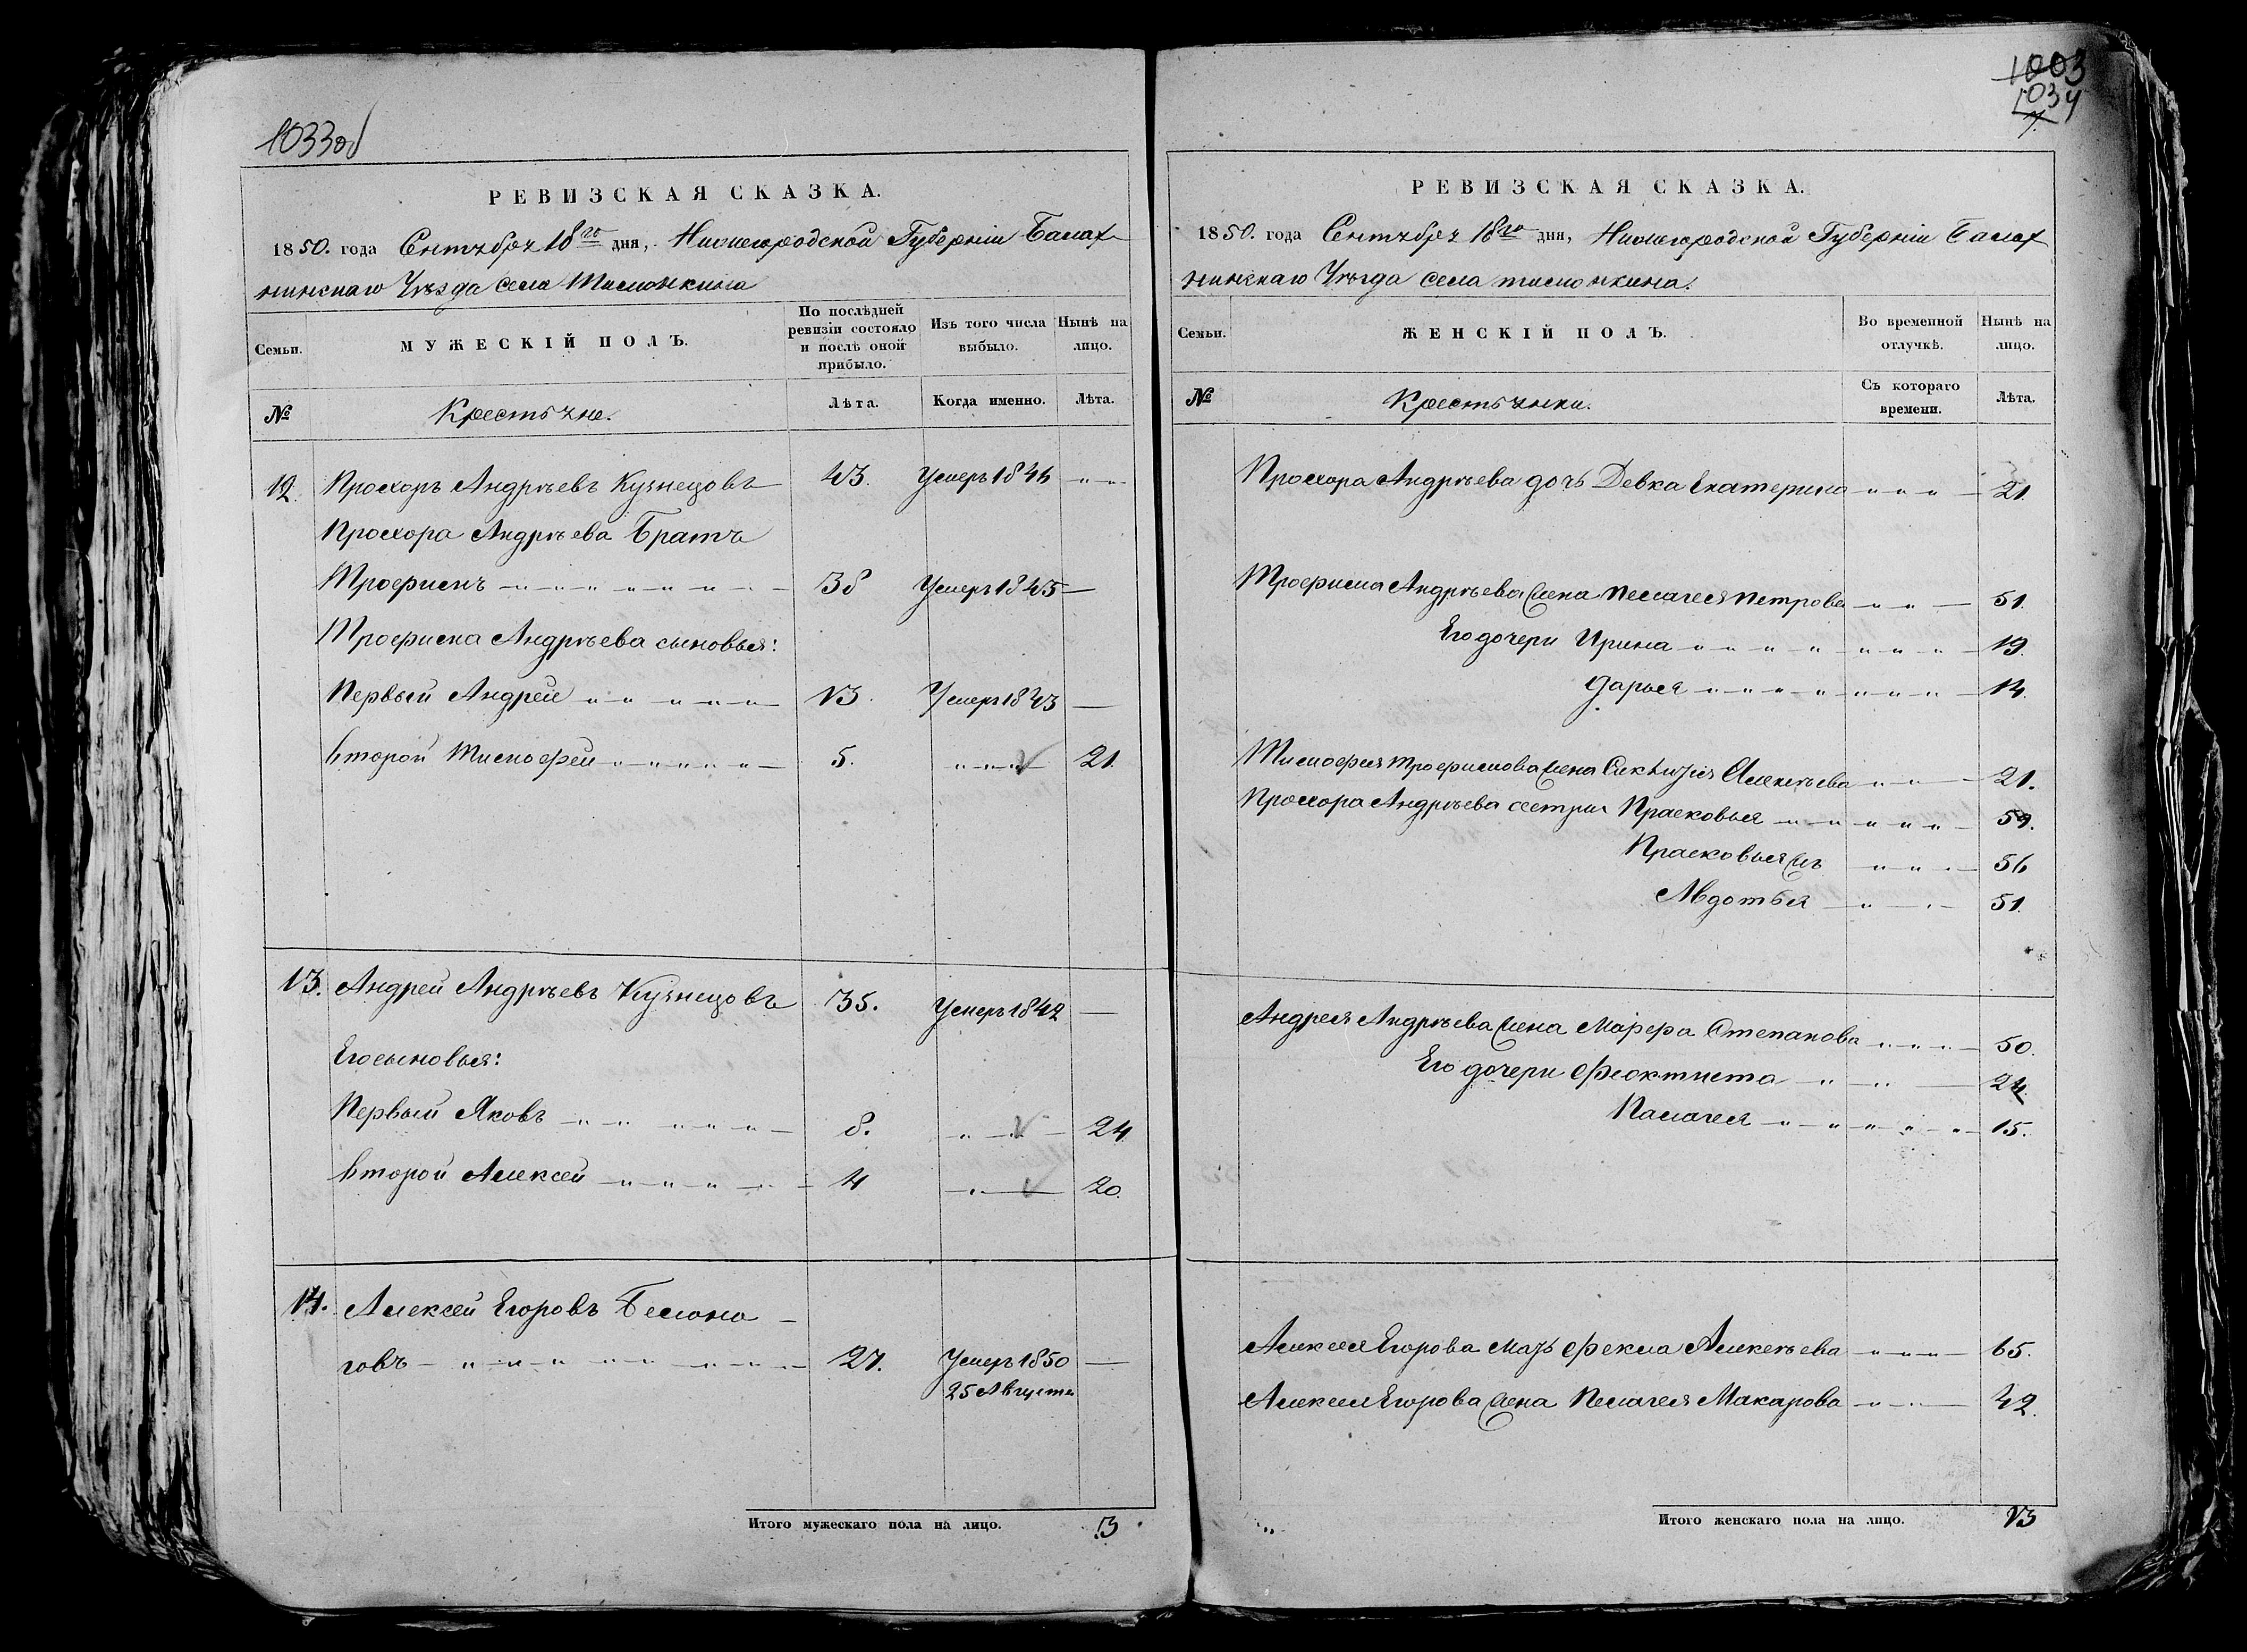 1033об
РЕВИЗСКАЯ СКАЗКА.
1850. года Сентября 18го дня, Нижегородской Губерніи Балах-
нинскаго Уѣзда села
Семьи.
МУЖЕСКІЙ ПОЛЪ.
По послѣдней ревизіи состояло и послѣ оной прибыло.
Изъ того числа выбыло.
Нынѣ на лицо.
№
Крестьяне.
Лѣта.
Когда именно.
Лѣта.
12. Прохоръ Андрѣевъ Кузнецовъ 43. Умеръ 1844
Прохора Андрѣева Братъ
Трофимъ 38 Умеръ 1845
Трофима Андрѣева сыновья:
Первый Андрей 13. Умеръ 1843
Второй Тимофей 5. 21.
13. Андрей Андрѣевъ Кузнецовъ 35. Умеръ 1842
Его сыновья:
Первый Яковъ 8. 24
Второй Алексей 4 20.
14. Алексей Егоровъ Белоно
говъ 27. Умеръ 1850
25 Августа
Итого мужескаго пола на лицо. 3
1003
1034
РЕВИЗСКАЯ СКАЗКА.
1850. года Сентября 18го дня, Нижегородской Губерніи Балах
нинскаго Уѣзда села
Семьи.
ЖЕНСКІЙ ПОЛЪ.
Во временной отлучкѣ.
Нынѣ на лицо.
№
Крестьянки.
Съ котораго времени.
Лѣта.
Прохора Андрѣева дочь Девка Екатерина 21.
Трофима Андрѣева жена Пелагея Петрова 51.
Его дочери Ирина 19.
Дарья 14.
Тимофея Трофимова жена Алексѣева 21.
Прохора Андрѣева сестры Прасковья 59.
Прасковья жъ 56
Авдотья 51.
Андрея Андрѣева жена Марфа Степанова 50.
Его дочери Феоктиста 24.
Палагея 15.
Алексея Егорова мать Фекла Алексѣева 65.
Алексея Егорова жена Пелагея Макарова 42.
Итого женскаго пола на лицо. 13